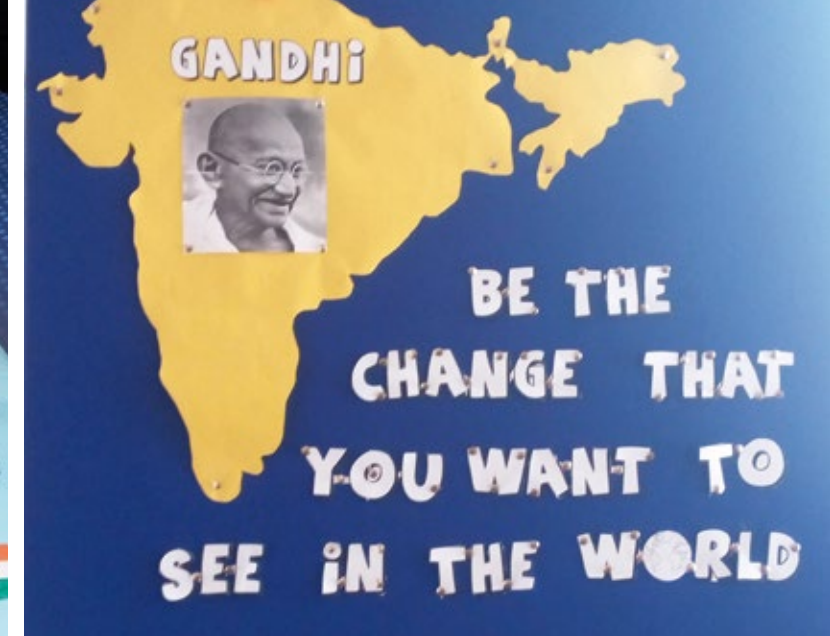 GANDHi
BE THE
CHANGE THAT
YOU WANT TO
SEE iN THE
WORLD